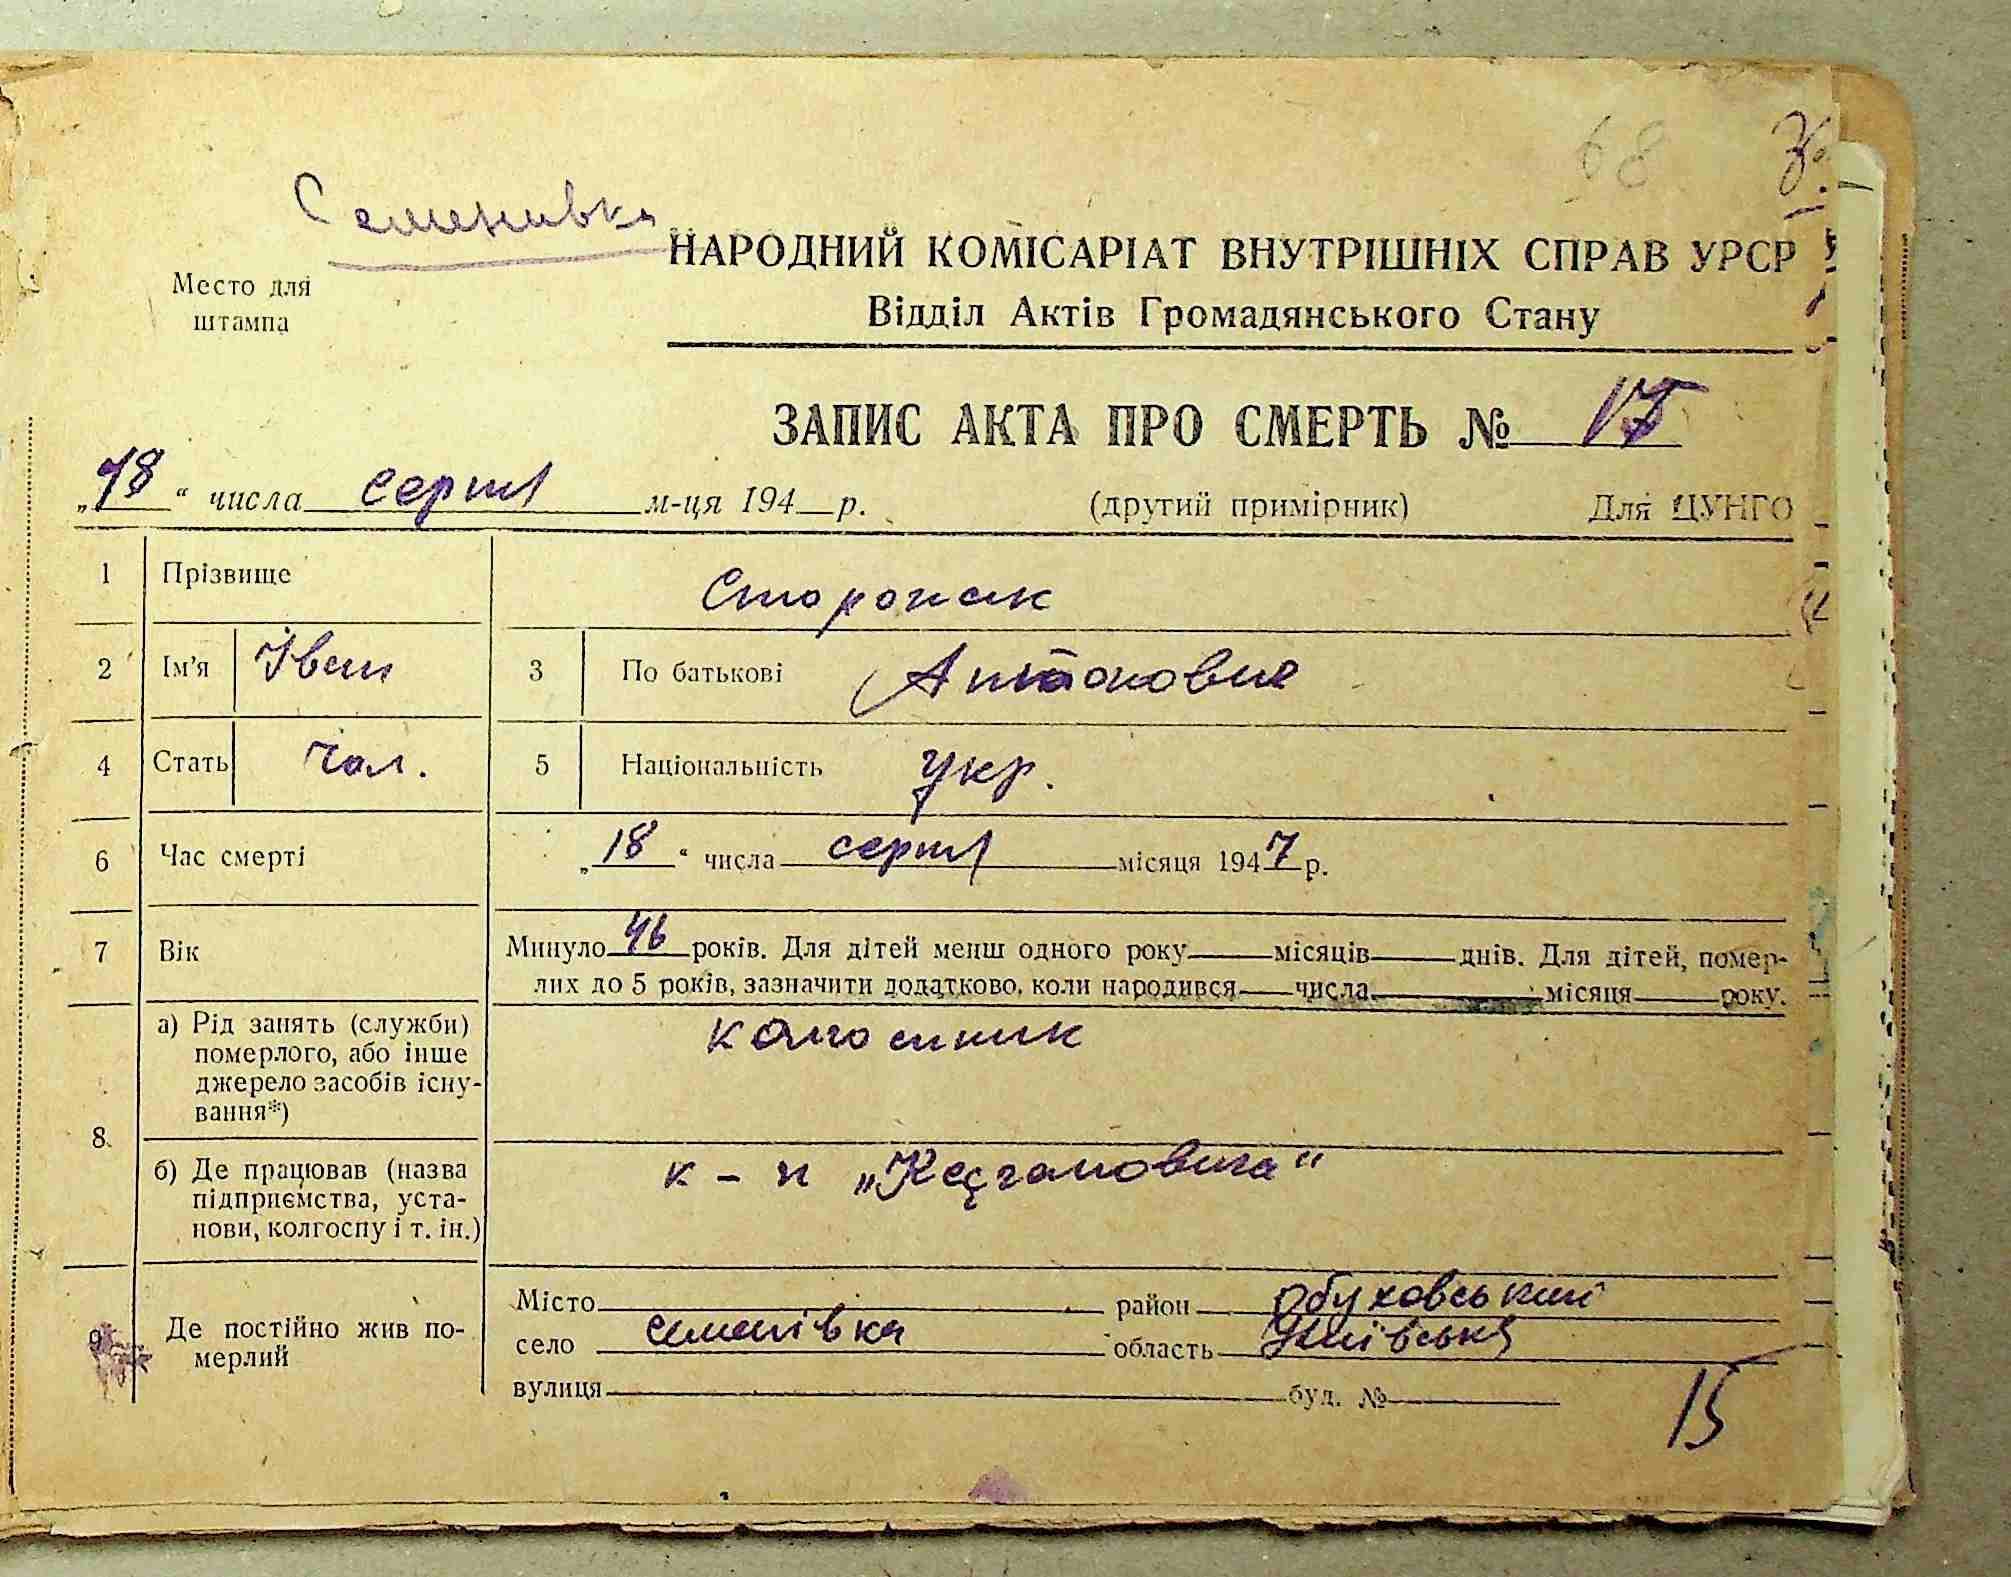 68
Семенивка
НАРОДНИЙ КОМІСАРІАТ ВНУТРІШНІХ СПРАВ УРСР
Место для
штампа
Відділ Актів Громадянського Стану
ЗАПИС АКТА ПРО СМЕРТЬ №
„18“ числа серпня м-ця 194 р. (другий примірник) Для ЦУНГО
1 Прізвище Сторожик
2 Ім'я Іван 3 По батькові Антонович
4 Стать чол. 5 Національність укр.
6 Час смерті „18“ числа серпня місяця 1947 р.
7 Вік Минуло 46 років. Для дітей менш одного року місяців днів. Для дітей, помер-
лих до 5 років, зазначити додатково, коли народився числа місяця року.
8. а) Рід занять (служби) колгоспник
померлого, або інше
джерело засобів існу-
вання*)
б) Де працював (назва к-п „Кагановича“
підприємства, уста-
нови, колгоспу і т. ін.)
9 Де постійно жив по-
мерлий
Місто район Обуховський
село Семенівка область Київська
вулиця буд. №
15